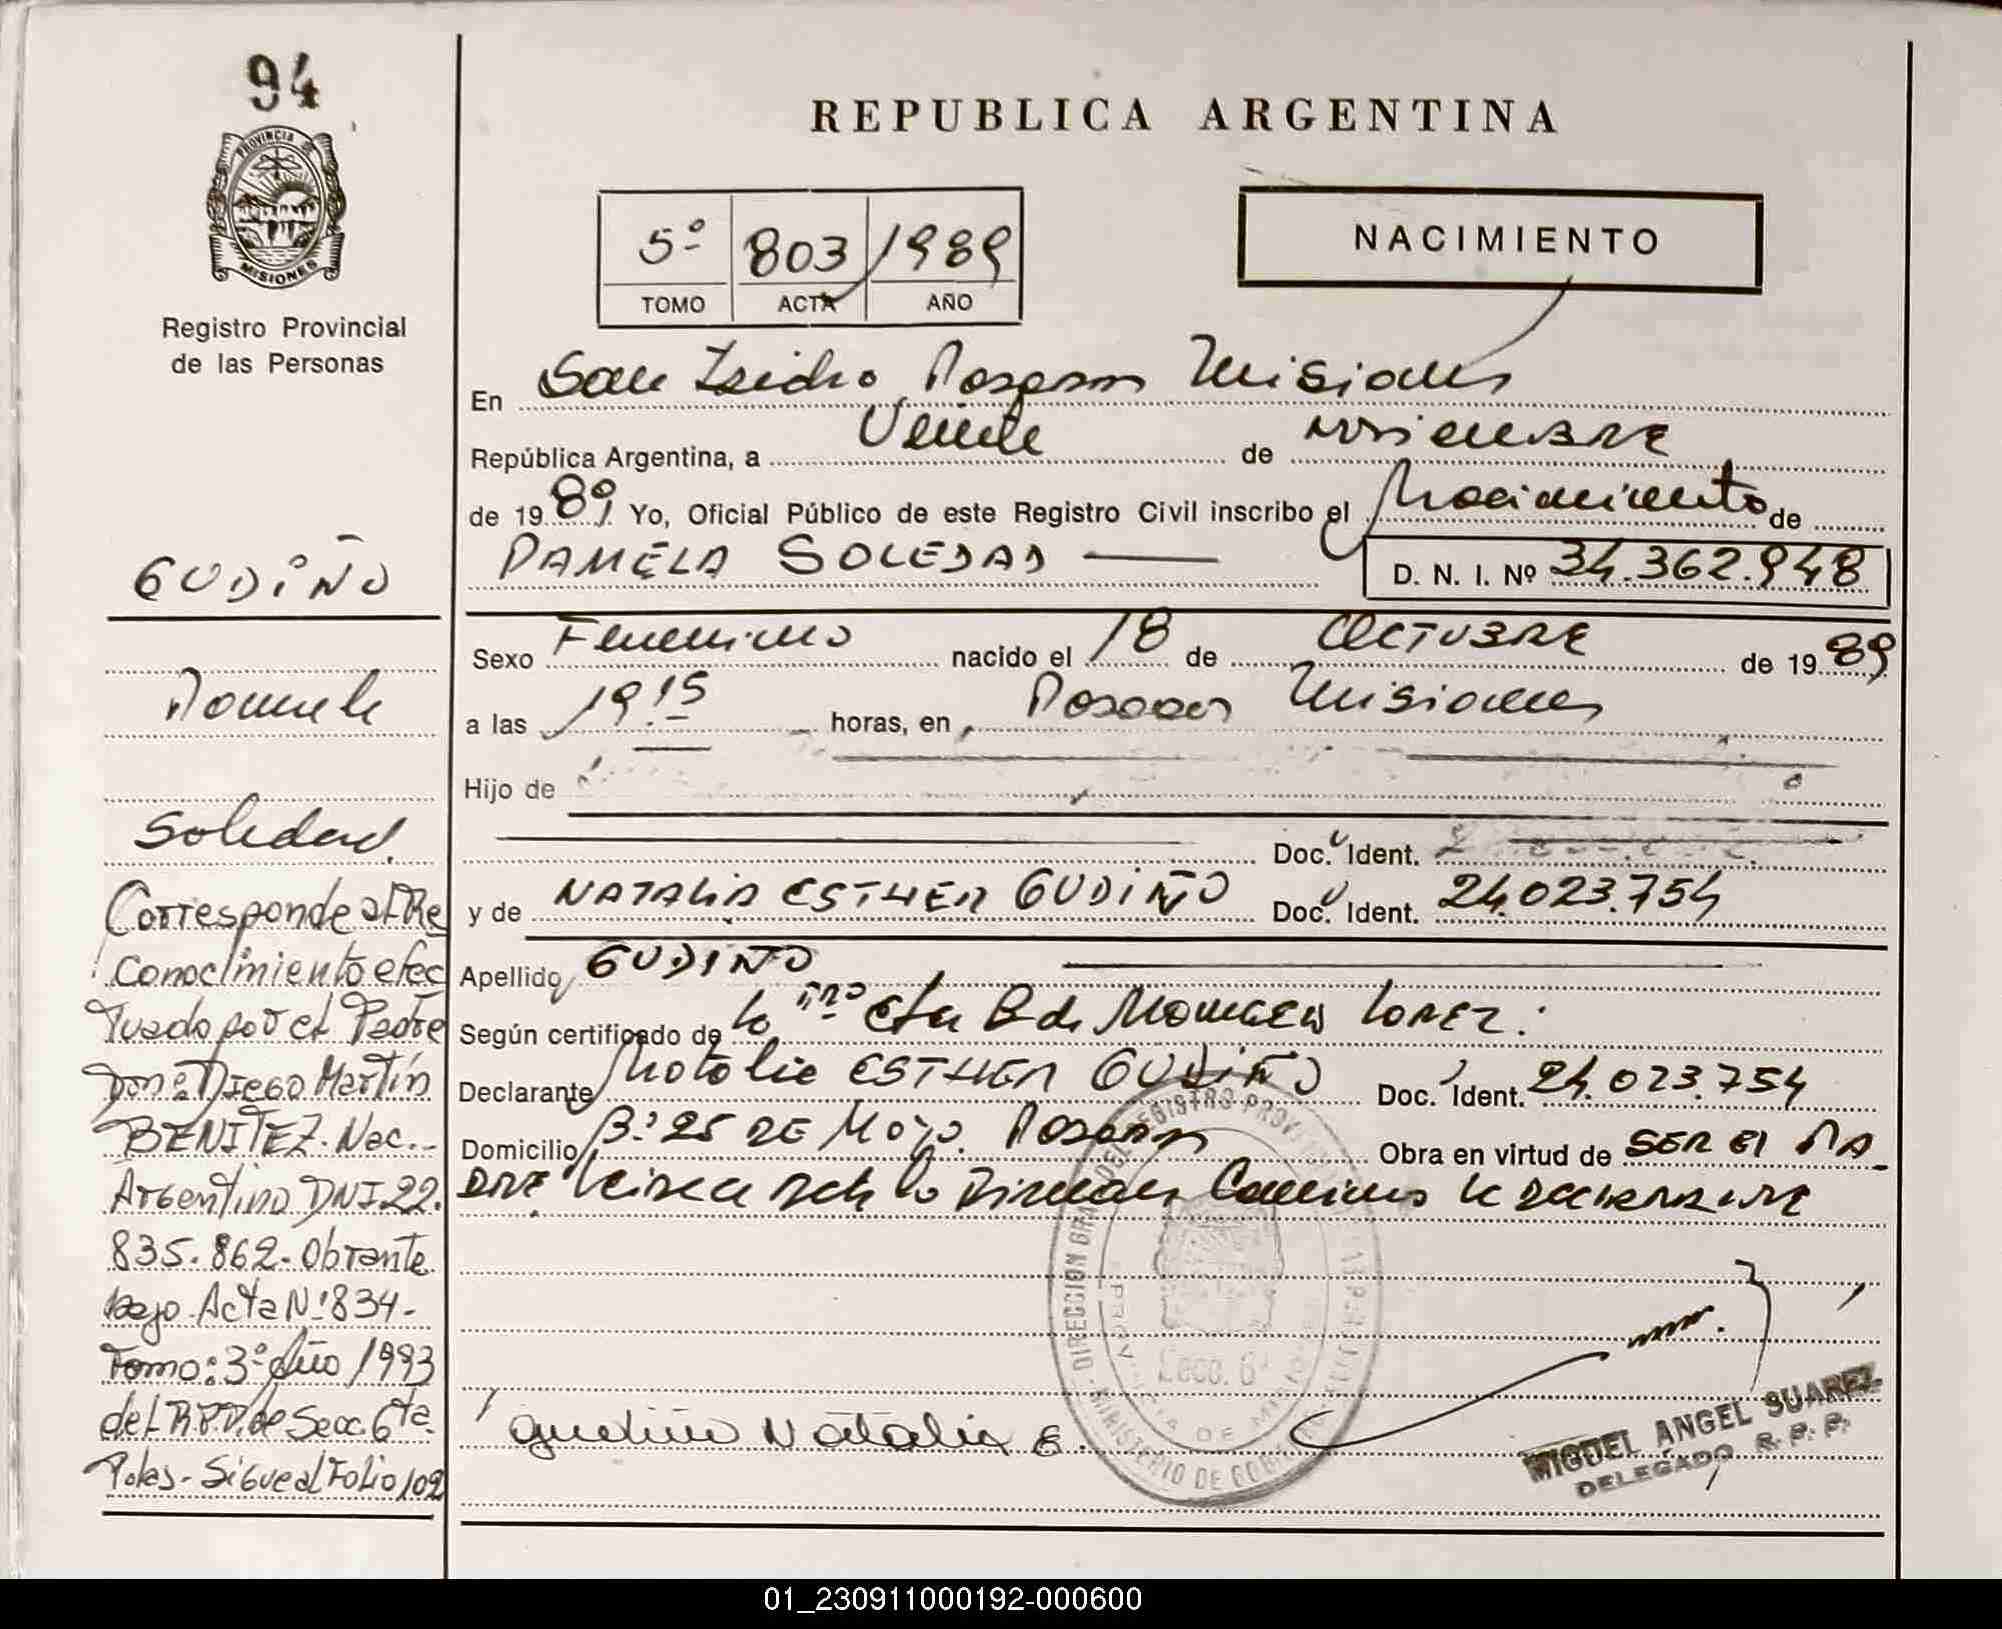 94
PROVINCIA DE
MISIONES
Registro Provincial
de las Personas
REPUBLICA ARGENTINA
5º 803 1989
TOMO ACTA AÑO
NACIMIENTO
En San Isidro Posadas Misiones
República Argentina, a Veinte de noviembre
de 1989 Yo, Oficial Público de este Registro Civil inscribo el Nacimiento de
PAMELA SOLEDAD D. N. I. Nº 34.362.948
Sexo Femenino nacido el 18 de OCTUBRE de 1989
a las 19.15 horas, en Posadas Misiones
Hijo de
Doc. Ident.
y de NATALIA ESTHER GUDIÑO Doc. Ident. 24.023.754
Apellido GUDIÑO
Según certificado de la
Declarante Natalia ESTHER GUDIÑO Doc. Ident. 24.023.754
Domicilio Bº 25 DE Mayo. Posadas Obra en virtud de SER El PA
DRE
Gudiño Natalia E.
MIGUEL ANGEL SUAREZ
DELEGADO R. P. P.
Secc. 6ª
GUDIÑO
Pamela
Soledad.
Corresponde al Re
conocimiento efec
tuado por el Padre
Don: DIEGO Martín
BENITEZ. Nac.-
Argentino DNI 22.
835.862- Obrante
bajo Acta Nº 834-
Tomo: 3º Año 1993
del R.P.P. de Secc. 6ta
Pdas- Sigue al Folio 102
01_230911000192-000600